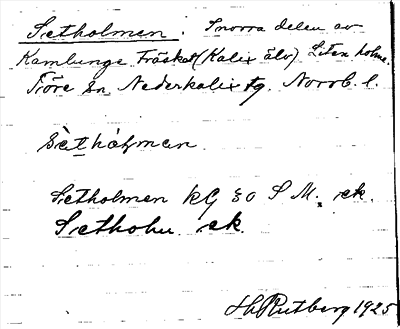 Setholmen. Snorra delen av
Kamlunge Träsket (Kalix älv) Liten holme.
Töre sn, Nederkalix tg. Norrb. l.
Sèthólman.
Setholmen kG 30 S M., ek.
Setholm. ek.
H Rutberg 1925